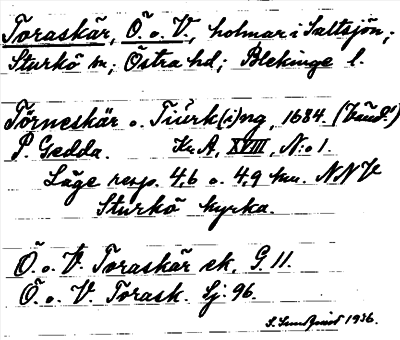 Toraskär, Ö. o. V., holmar i Saltsjön;
Sturkö sn; Östra hd; Blekinge l.
Törneskär o. Tiurk(i)ng, 1684.
P. Gedda. Kr. A, XVIII, N:o 1.
Läge resp. 4,6 o. 4,9 km. NNV
Sturkö kyrka.
Ö. o. V. Toraskär ek. G. 11.
Ö. o. V. Torask. Sj: 96.
1936.